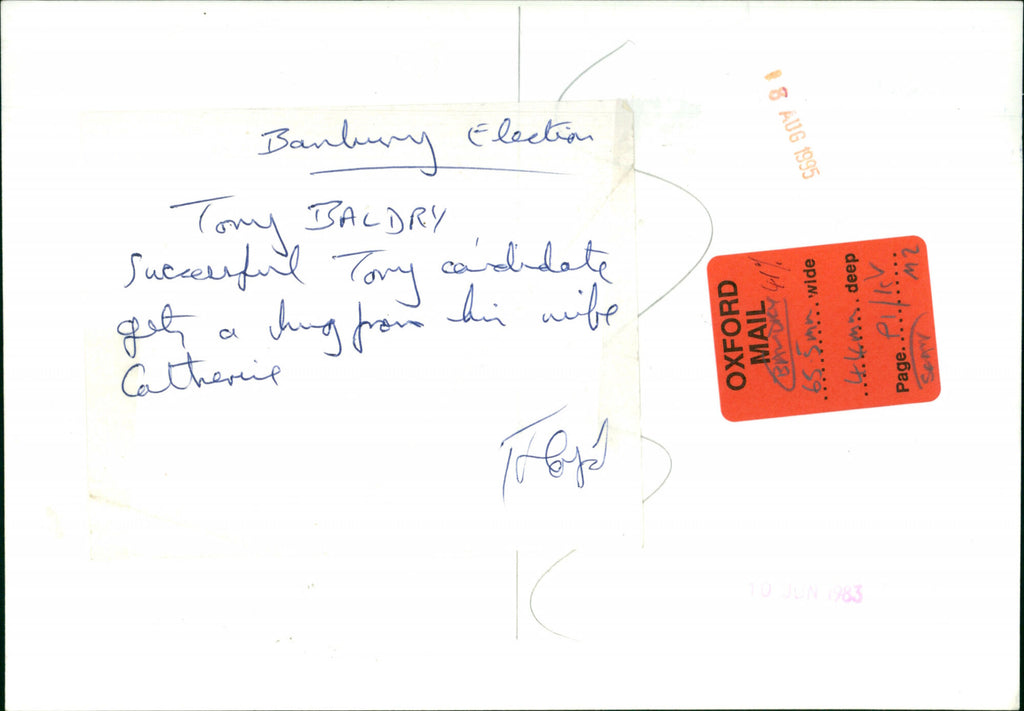 Banbury Election
Tony BALDRY
Successful Tory candidate
gets a hug from his wife
Catherine
18 AUG 1995
OXFORD
MAIL
BALDRY 41%
65.5mm wide
44mm deep
Page P1/IV
M2
10 JUN 1983